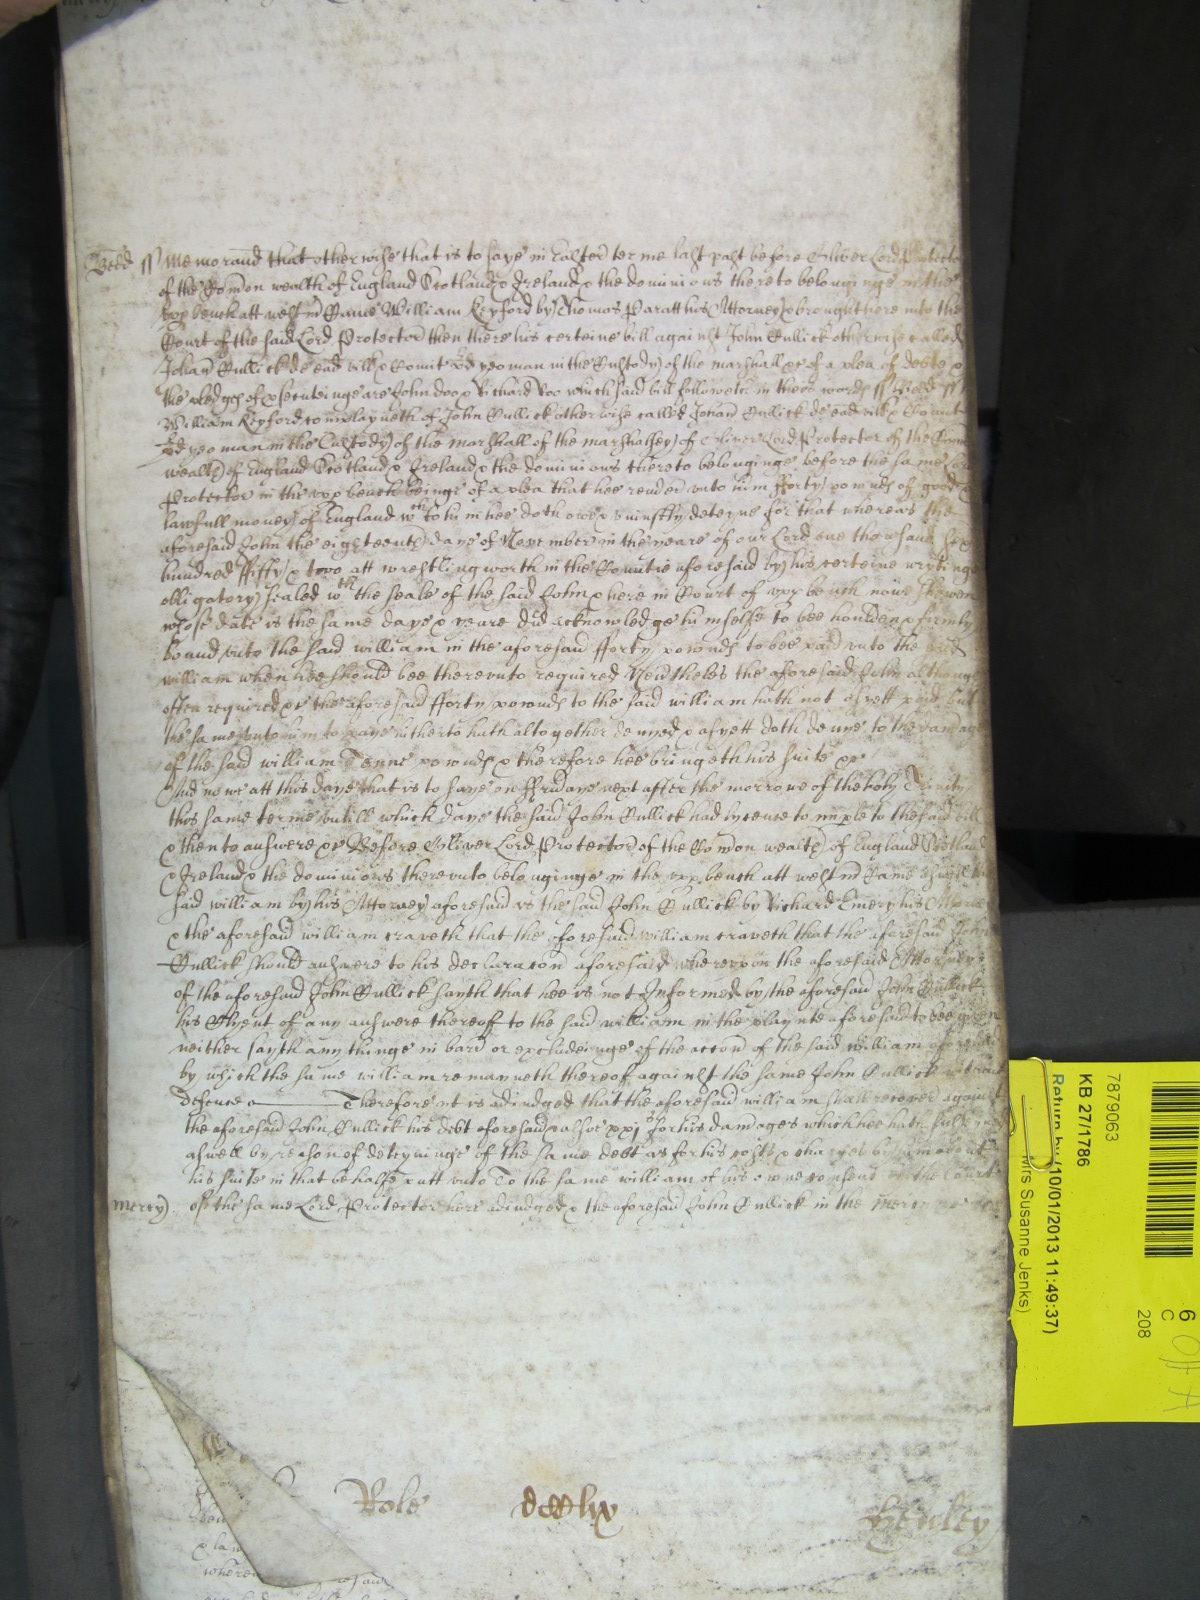 Bedd ss Memorand that otherwise that is to saye in Easter terme last past before Oliver Lord Protector
of the Comon wealth of England Scotland & Ireland & the dominions thereto belonginge in the
upp bench att westm Came William Keyford by Thomas Paratt his Attorney & brought here into the
Court of the said Lord Protector then there his certeine bill against John Gullick otherwise called
Johan Gullick de End vill & Comit yeoman in the Custody of the marshall &c of a plea of debte &
the pledges of psecuteinge are John Doo & Richard Roo which said bill followeth in theis words ss Bedd ss
William Keyford complayneth of John Gullick otherwise called Johan Gullick de End vill & Comit
yeoman in the Custody of the marshall of the marshalsey of Oliver Lord Protector of the Comon
wealth of England Scotland & Ireland & the dominions thereto belonginge before the same Lord
Protector in the upp bench beinge of a plea that hee render unto him fforty pownds of good &
lawfull money of England wch to him hee doth owe & uniustly deteyne for that whereas the
aforesaid John the eighteenth daye of November in the yeare of our Lord one thowsand six
hundred ffifty & two att wrestlingworth in the Countie aforesaid by his certeine wrytinge
obligatory sealed wth the seale of the said John & here in Court of upp bench nowe shewen
whose date is the same daye & yeare did acknowledge himselfe to bee houlden & firmly
bound unto the said william in the aforesaid fforty pownds to bee paid unto the said
william when hee should bee thereunto required Neutheles the aforesaid John although
often required &c the aforesaid fforty pownds to the said william hath not as yett paid but
the same unto him to paye hitherto hath altogether denyed & as yett doth denye to the damage
of the said william Tenne pownds & therefore hee bringeth his suite &c
And nowe att this daye that is to saye on ffridaye next after the morrowe of the holy Trinity
this same terme untill which daye the said John Gullick had lycence to imple to the said bill
& then to answere &c Before Oliver Lord Protector of the Comon wealth of England Scotland
& Ireland & the dominions thereunto belonginge in the upp bench att westm Came aswell the
said william by his Attorney aforesaid as the said John Gullick by Richard Emery his Attorney
& the aforesaid william craveth that the aforesaid william craveth that the aforesaid John
Gullick should answere to his declaracon aforesaid whereupon the aforesaid Attorney
of the aforesaid John Gullick sayth that hee is not Informed by the aforesaid John Gullick
his Clyent of any answere thereof to the said william in the playnte aforesaid to bee given
neither sayth any thinge in barr or excludeinge of the accon of the said William aforesaid
by which the same william remayneth thereof against the same John Gullick without
defence Therefore it is adiudged that the aforesaid william shall recover against
the aforesaid John Gullick his debt aforesaid & alsoe xxj s for his damages which hee hath susteyned
aswell by reason of deteyninge of the same debt as for his costs & charges by him about
his suite in that behalfe & att unto To the same william of his owne consent the Court
mercy of the same Lord Protector here adiudged & the aforesaid John Gullick in the mercy
Role dcclix Henley
7879063
KB 27/1786
Return by (10/01/2013 11:49:37)
Mrs Susanne Jenks)
6
C
208